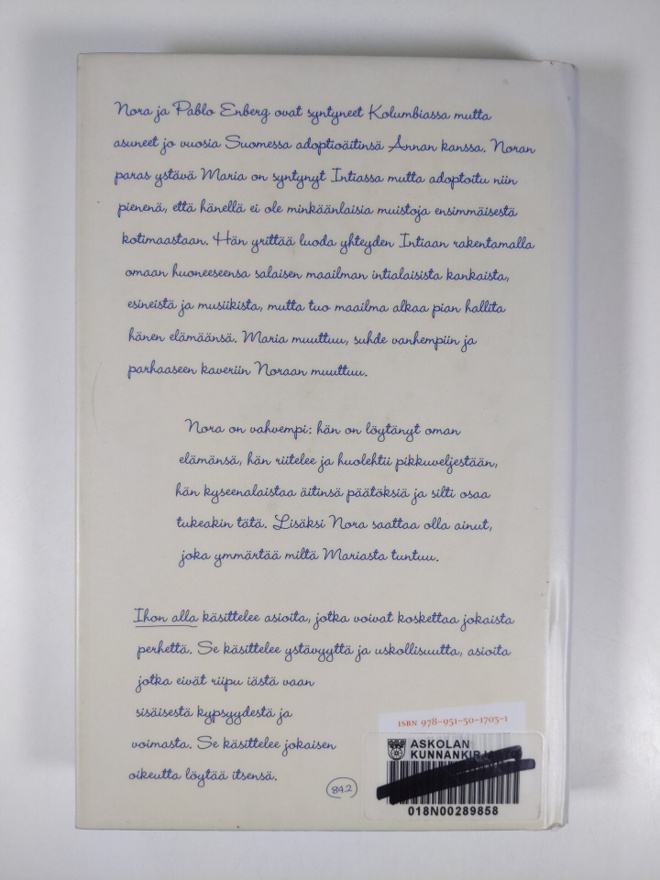 Nora ja Pablo Enberg ovat syntyneet Kolumbiassa mutta
asuneet jo vuosia Suomessa adoptioäitinsä Annan kanssa. Noran
paras ystävä Maria on syntynyt Intiassa mutta adoptoitu niin
pienenä, että hänellä ei ole minkäänlaisia muistoja ensimmäisestä
kotimaastaan. Hän yrittää luoda yhteyden Intiaan rakentamalla
omaan huoneeseensa salaisen maailman intialaisista kankaista,
esineistä ja musiikista, mutta tuo maailma alkaa pian hallita
hänen elämäänsä. Maria muuttuu, suhde vanhempiin ja
parhaaseen kaveriin Noraan muuttuu.
Nora on vahvempi: hän on löytänyt oman
elämänsä, hän riitelee ja huolehtii pikkuveljestään,
hän kyseenalaistaa äitinsä päätöksiä ja silti osaa
tukeakin tätä. Lisäksi Nora saattaa olla ainut,
joka ymmärtää miltä Mariasta tuntuu.
Ihon alla käsittelee asioita, jotka voivat koskettaa jokaista
perhettä. Se käsittelee ystävyyttä ja uskollisuutta, asioita
jotka eivät riipu iästä vaan
sisäisestä kypsyydestä ja
voimasta. Se käsittelee jokaisen
oikeutta löytää itsensä.
84.2
ISBN 978-951-50-1705-1
ASKOLAN
018N00289858